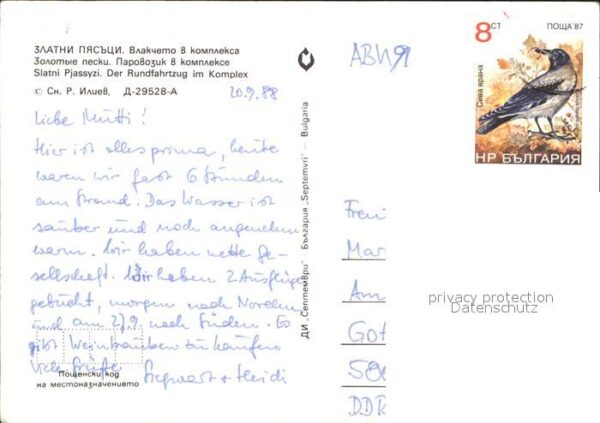 ЗЛАТНИ ПЯСЪЦИ. Влакчето в комплекса
Золотые пески. Паровозик в комплексе
Slatni Pjassyzi. Der Rundfahrtzug im Komplex
© Сн. Р. Илиев, Д-29528-А
20.9.88
Liebe Mutti!
Hier ist alles prima, heute
waren wir fast 6 Stunden
am Strand. Das Wasser ist
sauber und noch angenehm
warm. Wir haben nette Ge-
sellschaft. Wir haben 2 Ausflüge
gebucht, morgen nach Norden
und am 27.9. nach Süden. Es
gibt Weintrauben zu kaufen
Viele Grüße Siegwart + Heidi
Пощенски код
на местоназначението
ДИ „Септември" България „Septemvri" — Bulgaria
АВИА
8 СТ
ПОЩА'87
Сива врана
НР БЪЛГАРИЯ
Mar
Am
Got
DDR
privacy protection
Datenschutz